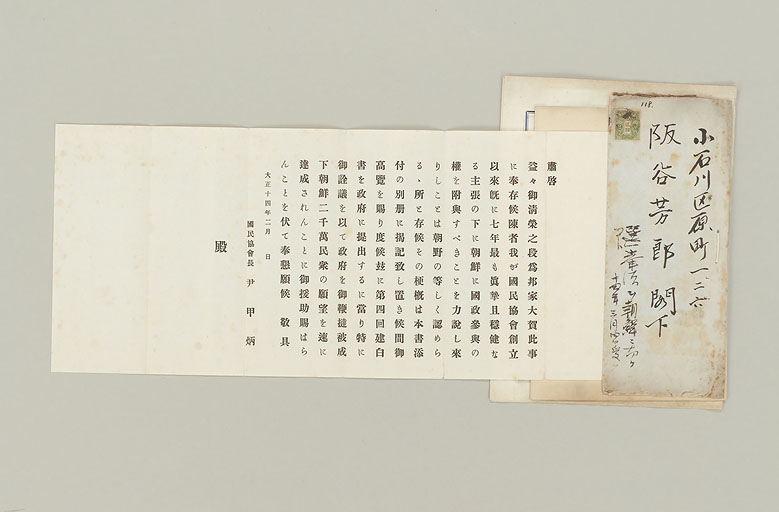 小石川区原町一二六
阪谷芳郎閣下
118.
肅啓
益々御清榮之段爲邦家大賀此事
に奉存候陳者我が國民協會創立
以來既に七年最も眞摯且穩健な
る主張の下に朝鮮に國政參與の
權を附與すべきことを力說し來
りしことは朝野の等しく認めら
るゝ所と存候その梗槪は本書添
付の別册に揭記致し置き候間御
高覽を賜り度候玆に第四回建白
書を政府に提出するに當り特に
御詮議を以て政府を御鞭撻被成
下朝鮮二千萬民衆の願望を速に
達成されんことに御援助賜はら
んことを伏て奉懇願候 敬具
大正十四年二月 日
國民協會長 尹甲炳
殿